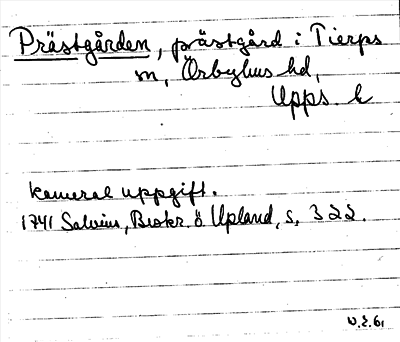 Prästgården, prästgård i Tierps
sn, Örbyhus hd,
Upps. l
kameral uppgift.
1741 Salvius, Beskr. ö Upland, s. 322.
W.E. 61